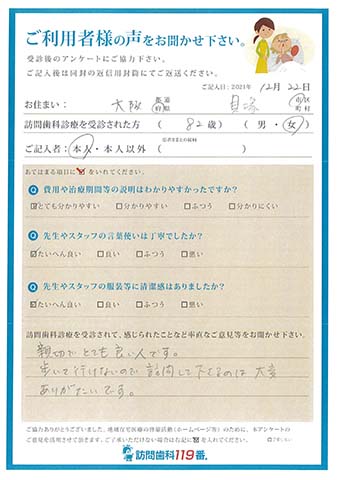 ご利用者様の声をお聞かせ下さい。
受診後のアンケートにご協力下さい。
ご記入後は同封の返信用封筒にてご返送ください。
ご記入日：2021年 12月 22日
お住まい： 大阪 都道府県 貝塚 市区町村
訪問歯科診療を受診された方 （ 82歳） （ 男・女）
ご記入者：本人・本人以外（ ）
あてはまる項目に☑をいれてください。
Q 費用や治療期間等の説明はわかりやすかったですか？
☑とても分かりやすい □分かりやすい □ふつう □分かりにくい
Q 先生やスタッフの言葉使いは丁寧でしたか？
☑たいへん良い □良い □ふつう □悪い
Q 先生やスタッフの服装等に清潔感はありましたか？
☑たいへん良い □良い □ふつう □悪い
訪問歯科診療を受診されて、感じられたことなど率直なご意見等をお聞かせ下さい。
親切で とても良い人です。
歩いて行けないので 訪問して下さるのは 大変
ありがたいです。
ご協力ありがとうございました。地域在宅医療の啓蒙活動（ホームページ等）のために、本アンケートの
ご意見を活用させて頂きます。ご了承いただけない場合は右記に☑を入れてください。 □了承しない
訪問歯科119番®